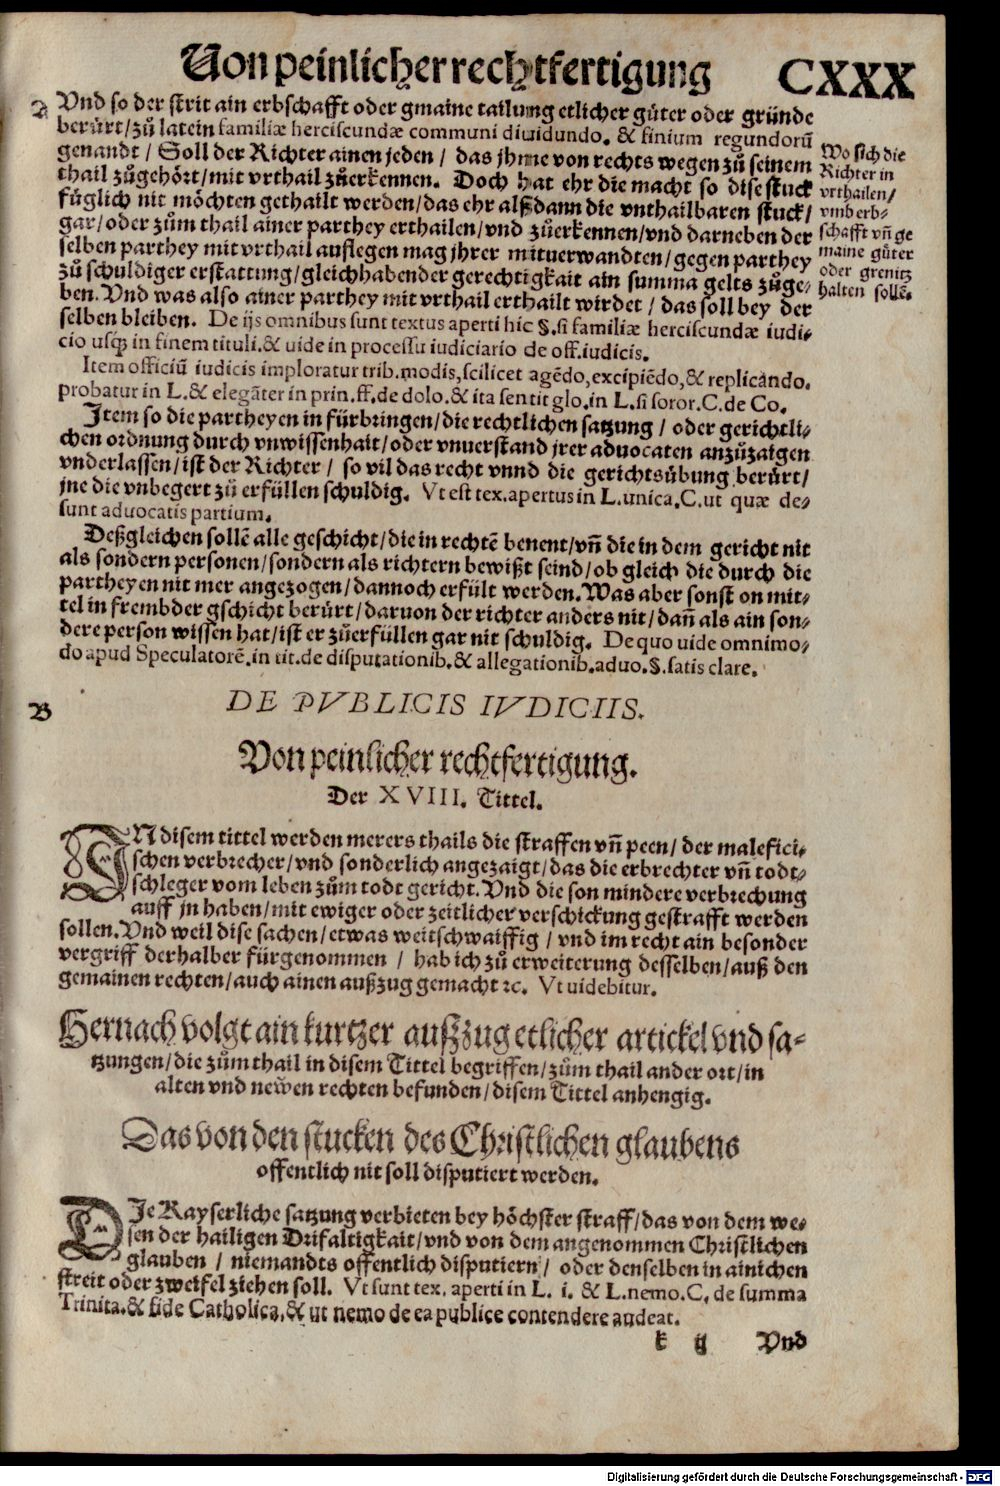 Von peinlicher rechtfertigung CXXX
A Vnd so der strit ain erbschafft oder gmaine tailung etlicher gůter oder gründe
berůrt/zů latein familiæ herciscundæ communi diuidundo. & finium regundorũ
genandt / Soll der Richter ainen jeden / das jhme von rechts wegen zů seinem
thail zůgehört/mit vrthail zůerkennen. Doch hat ehr die macht so dise stuck
füglich nit möchten gethailt werden/das ehr alßdann die vnthailbaren stuck/
gar/oder zům thail ainer parthey erthailen/vnd zůerkennen/vnd darneben der
selben parthey mit vrthail aufflegen mag jhrer mituerwandten/gegen parthey
zů schuldiger erstattung/gleichhabender gerechtigkait ain summa gelts zůge-
ben. Vnd was also ainer parthey mit vrthail erthailt wirdet / das soll bey der
selben bleiben. De ijs omnibus sunt textus aperti hic §. si familiæ herciscundæ iudi-
cio usq; in finem tituli. & uide in processu iudiciario de off. iudicis.
Wo sich die
Richter in
vrthailen/
vmb erb-
schafft vñ ge
maine gůter
oder grenitz
halten sollē.
Item officiũ iudicis imploratur trib. modis, scilicet agēdo, excipiēdo, & replicando.
probatur in L. & elegãter in prin. ff. de dolo. & ita sentit glo. in L. si soror. C. de Co.
Item so die partheyen in fürbringen/die rechtlichen satzung / oder gerichtli-
chen ordnung durch vnwissenhait/oder vnuerstand jrer aduocaten anzůzaigen
vnderlassen/ist der Richter / so vil das recht vnnd die gerichtsübung berůrt/
jne die vnbegert zů erfüllen schuldig. Vt est tex. apertus in L. unica. C. ut quæ de-
sunt aduocatis partium.
Deßgleichen sollē alle geschicht/die in rechtē benent/vñ die in dem gericht nit
als sondern personen/sondern als richtern bewißt seind/ob gleich die durch die
partheyen nit mer angezogen/dannoch erfült werden. Was aber sonst on mit-
tel in frembder gschicht berürt/daruon der richter anders nit/dañ als ain son-
dere person wissen hat/ist er zůerfüllen gar nit schuldig. De quo uide omnimo-
do apud Speculatorē. in tit. de disputationib. & allegationib. aduo. §. satis clare.
B DE PVBLICIS IVDICIIS.
Von peinlicher rechtfertigung.
Der XVIII. Tittel.
IN disem tittel werden merers thails die straffen vñ peen/ der malefici-
schen verbrecher/vnd sonderlich angezaigt/das die erbrechter vñ todt-
schleger vom leben zům todt gericht. Vnd die son mindere verbrechung
auff jn haben/mit ewiger oder zeitlicher verschickung gestrafft werden
sollen. Vnd weil dise sachen/etwas weitschwaiffig / vnd im recht ain besonder
vergriff derhalber fürgenommen / hab ich zů erweiterung desselben/auß den
gemainen rechten/auch ainen außzug gemacht ꝛc. Vt uidebitur.
Hernach volgt ain kurtzer außzug etlicher artickel vnd sa-
tzungen/die zům thail in disem Tittel begriffen/zům thail ander ort/in
alten vnd newen rechten befunden/disem Tittel anhengig.
Das von den stucken des Christlichen glaubens
offentlich nit soll disputiert werden.
DJe Kayserliche satzung verbieten bey höchster straff/das von dem we-
sen der hailigen Drifaltigkait/vnd von dem angenommen Christlichen
glauben / niemandts offentlich disputiern/ oder denselben in ainichen
streit oder zweifel ziehen soll. Vt sunt tex. aperti in L. i. & L. nemo. C. de summa
Trinita. & fide Catholica, & ut nemo de ea publice contendere audeat.
k ij Vnd
Digitalisierung gefördert durch die Deutsche Forschungsgemeinschaft - DFG